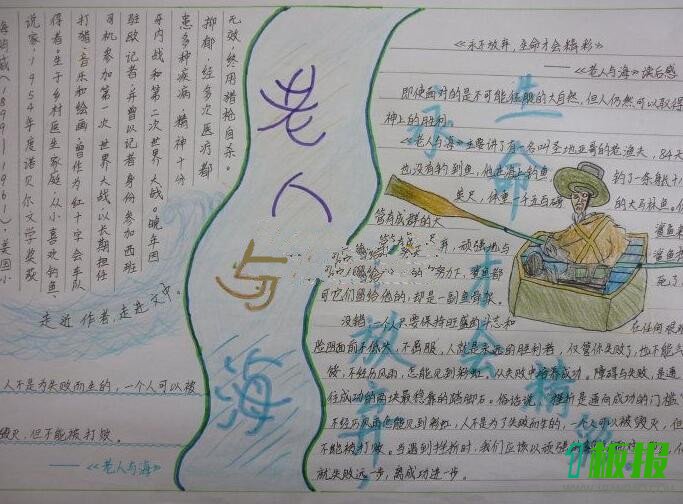 海明威(1899—1961)、美国小
说家、1954年度诺贝尔文学奖获
得者。生于乡村医生家庭,从小喜欢钓鱼、
打猎、音乐和绘画,曾作为红十字会车队
司机参加第一次世界大战,以长期担任
驻欧记者,并曾以记者身份参加西班
牙内战和第二次世界大战。晚年因
患多种疾病,精神十分
抑郁,经多次医疗都
无效,终用猎枪自杀。
走近作者,走进文中。
人不是为失败而生的,一个人可以被
毁灭,但不能被打败。
——《老人与海》
老人与海
《永不放弃,生命才会精彩》
——《老人与海》读后感
即使面对的是不可能征服的大自然,但人仍然可以取得
神上的胜利
《老人与海》主要讲了有一名叫圣地亚哥的老渔夫,84天
也没有钓到鱼,他在海上钓鱼 钓了一条躯十八
英尺,体重一千五百磅 的大马林鱼。
管有成群的大 鲨鱼
弃,顽强地与
的努力下,鲨鱼都
可它们留给他的,却是一副鱼骨架。
没错,一个人只要保持旺盛的斗志和 在任何艰难
险阻面前不低头,不屈服,人就是永远的胜利者,仅管你失败了,也不能气
馁,不经历风雨,怎能见到彩虹。从失败中培养成功。障碍与失败,是通
往成功的两块最稳靠的踏脚石。俗话说,挫折是通向成功的门槛
不经历风雨怎能见到彩虹,人不是为了失败而生的,一个人可以被毁灭,但
不能被打败。当遇到挫折时,我们应该以顽强的
就失败远一步,离成功进一步。
永不放弃
生命才会精彩
板报